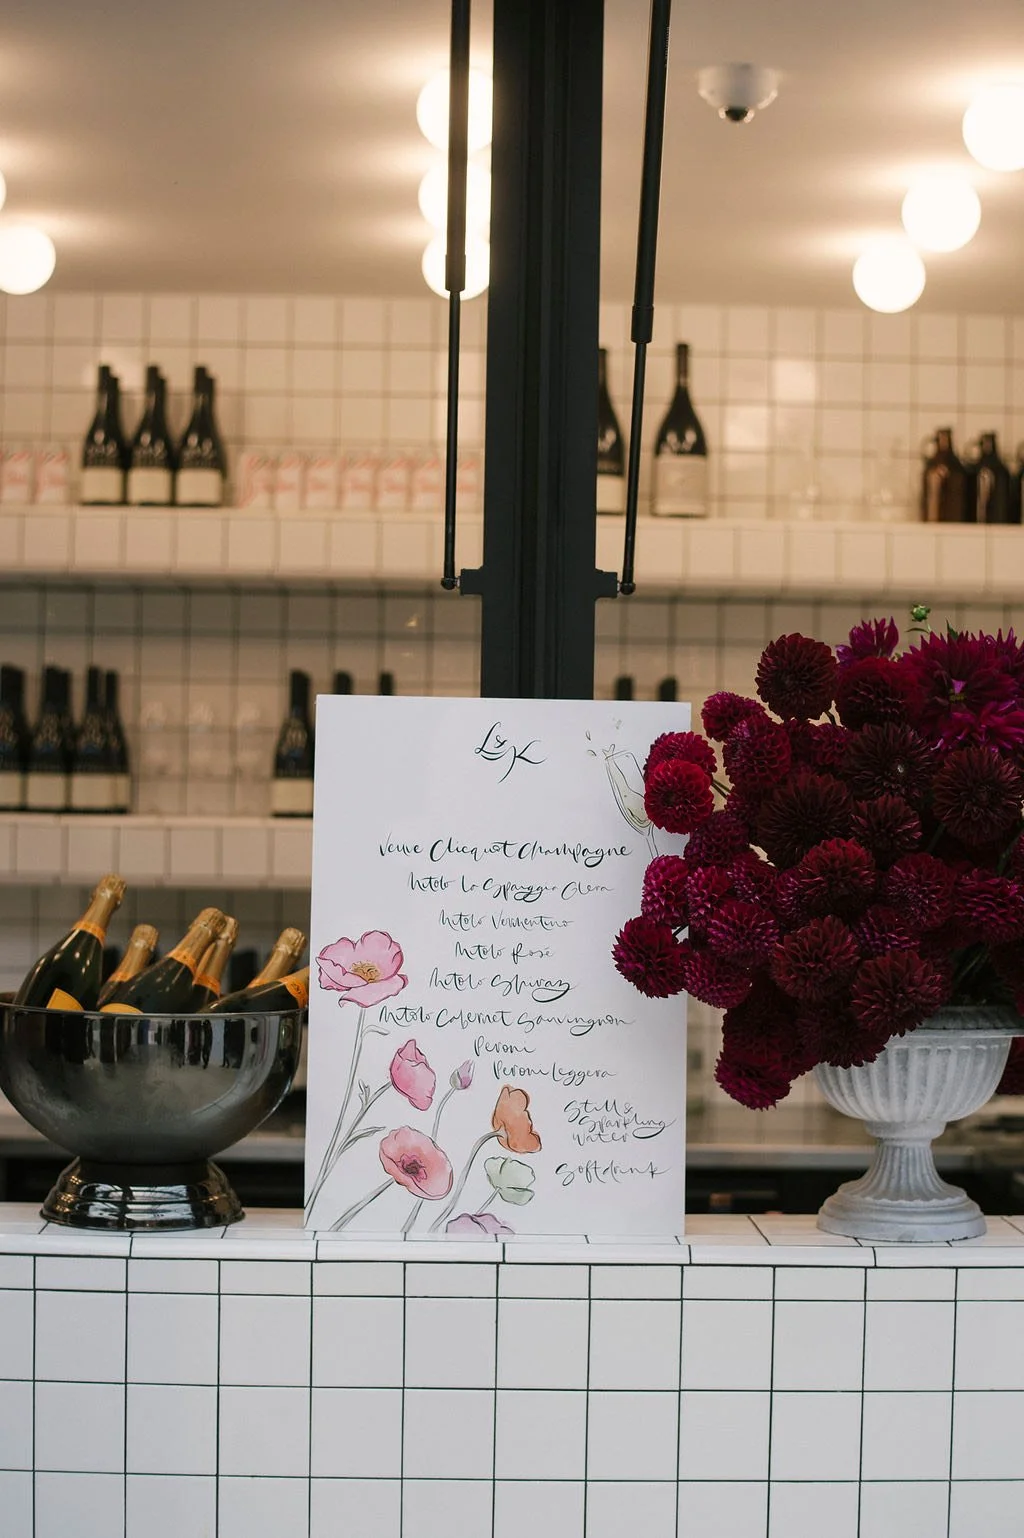 L&K
Veuve Clicquot Champagne
Mitolo La Spiaggia Glera
Mitolo Vermentino
Mitolo Rosé
Mitolo Shiraz
Mitolo Cabernet Sauvingnon
Peroni
Peroni Leggera
Still &
Sparkling
Water
Softdrink